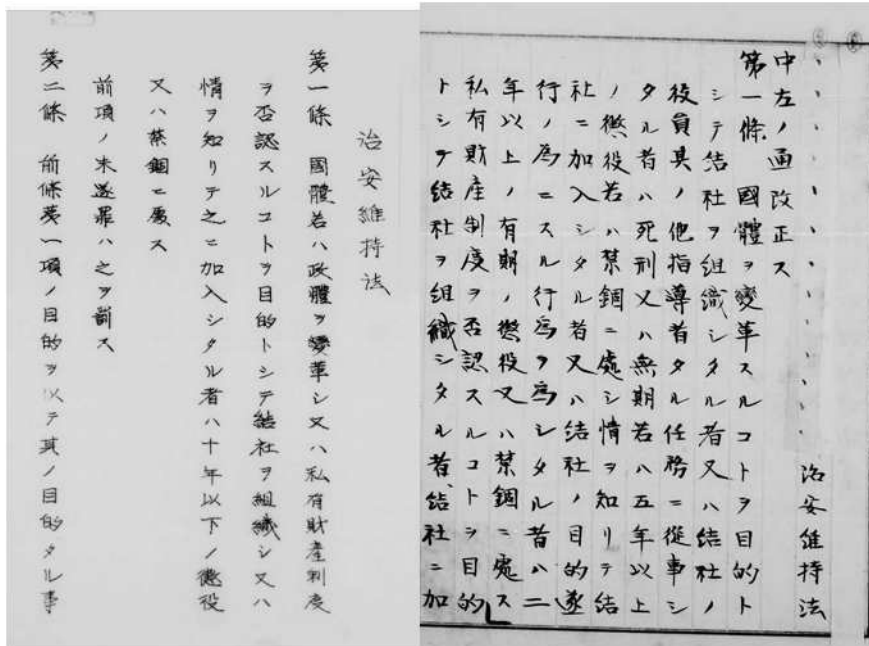 治安維持法
中左ノ通改正ス
第一條 國體ヲ變革スルコトヲ目的ト
シテ結社ヲ組織シタル者又ハ結社ノ
役員其ノ他指導者タル任務ニ從事シ
タル者ハ死刑又ハ無期若ハ五年以上
ノ懲役若ハ禁錮ニ處シ情ヲ知リテ結
社ニ加入シタル者又ハ結社ノ目的遂
行ノ為ニスル行為ヲ為シタル者ハ二
年以上ノ有期ノ懲役又ハ禁錮ニ處ス
私有財産制度ヲ否認スルコトヲ目的
トシテ結社ヲ組織シタル者結社ニ加
治安維持法
第一條 國體若ハ政體ヲ變革シ又ハ私有財産制度
ヲ否認スルコトヲ目的トシテ結社ヲ組織シ又ハ
情ヲ知リテ之ニ加入シタル者ハ十年以下ノ懲役
又ハ禁錮ニ處ス
前項ノ未遂罪ハ之ヲ罰ス
第二條 前條第一項ノ目的ヲ以テ其ノ目的タル事